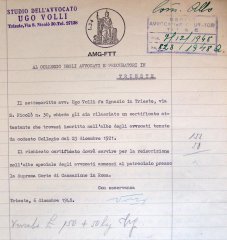 STUDIO DELL'AVVOCATO
UGO VOLLI
Trieste, Via S. Nicolò 30. Tel. 27138
AMG-FTT
AL COLLEGIO DEGLI AVVOCATI E PROCURATORI IN
TRIESTE
Il sottoscritto avv. Ugo Volli fu Ignazio in Trieste, via
S. Nicolò n. 30, chiede gli sia rilasciato un certificato at-
testante che trovasi inscritto nell'albo degli avvocati tenuto
da codesto Collegio dal 23 dicembre 1921.
Il richiesto certificato dovrà servire per la reiscrizione
nell'albo speciale degli avvocati ammessi al patrocinio presso
la Suprema Corte di Cassazione in Roma.
Con osservanza
Trieste, 6 dicembre 1948.